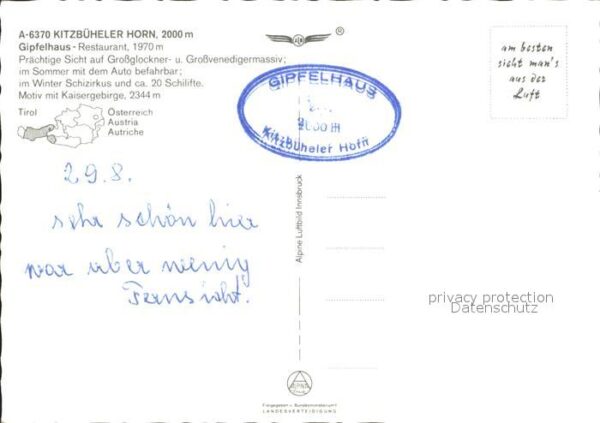 A-6370 KITZBÜHELER HORN, 2000 m
Gipfelhaus - Restaurant, 1970 m
Prächtige Sicht auf Großglockner- u. Großvenedigermassiv;
im Sommer mit dem Auto befahrbar;
im Winter Schizirkus und ca. 20 Schilifte.
Motiv mit Kaisergebirge, 2344 m
Tirol
Österreich
Austria
Autriche
®
GIPFELHAUS
2000 m
Kitzbüheler Horn
am besten
sieht man's
aus der
Luft
29.8.
sehr schön hier
war aber wenig
Fernsicht.
Alpine Luftbild Innsbruck
privacy protection
Datenschutz
Freigegeben v. Bundesministerium f.
LANDESVERTEIDIGUNG